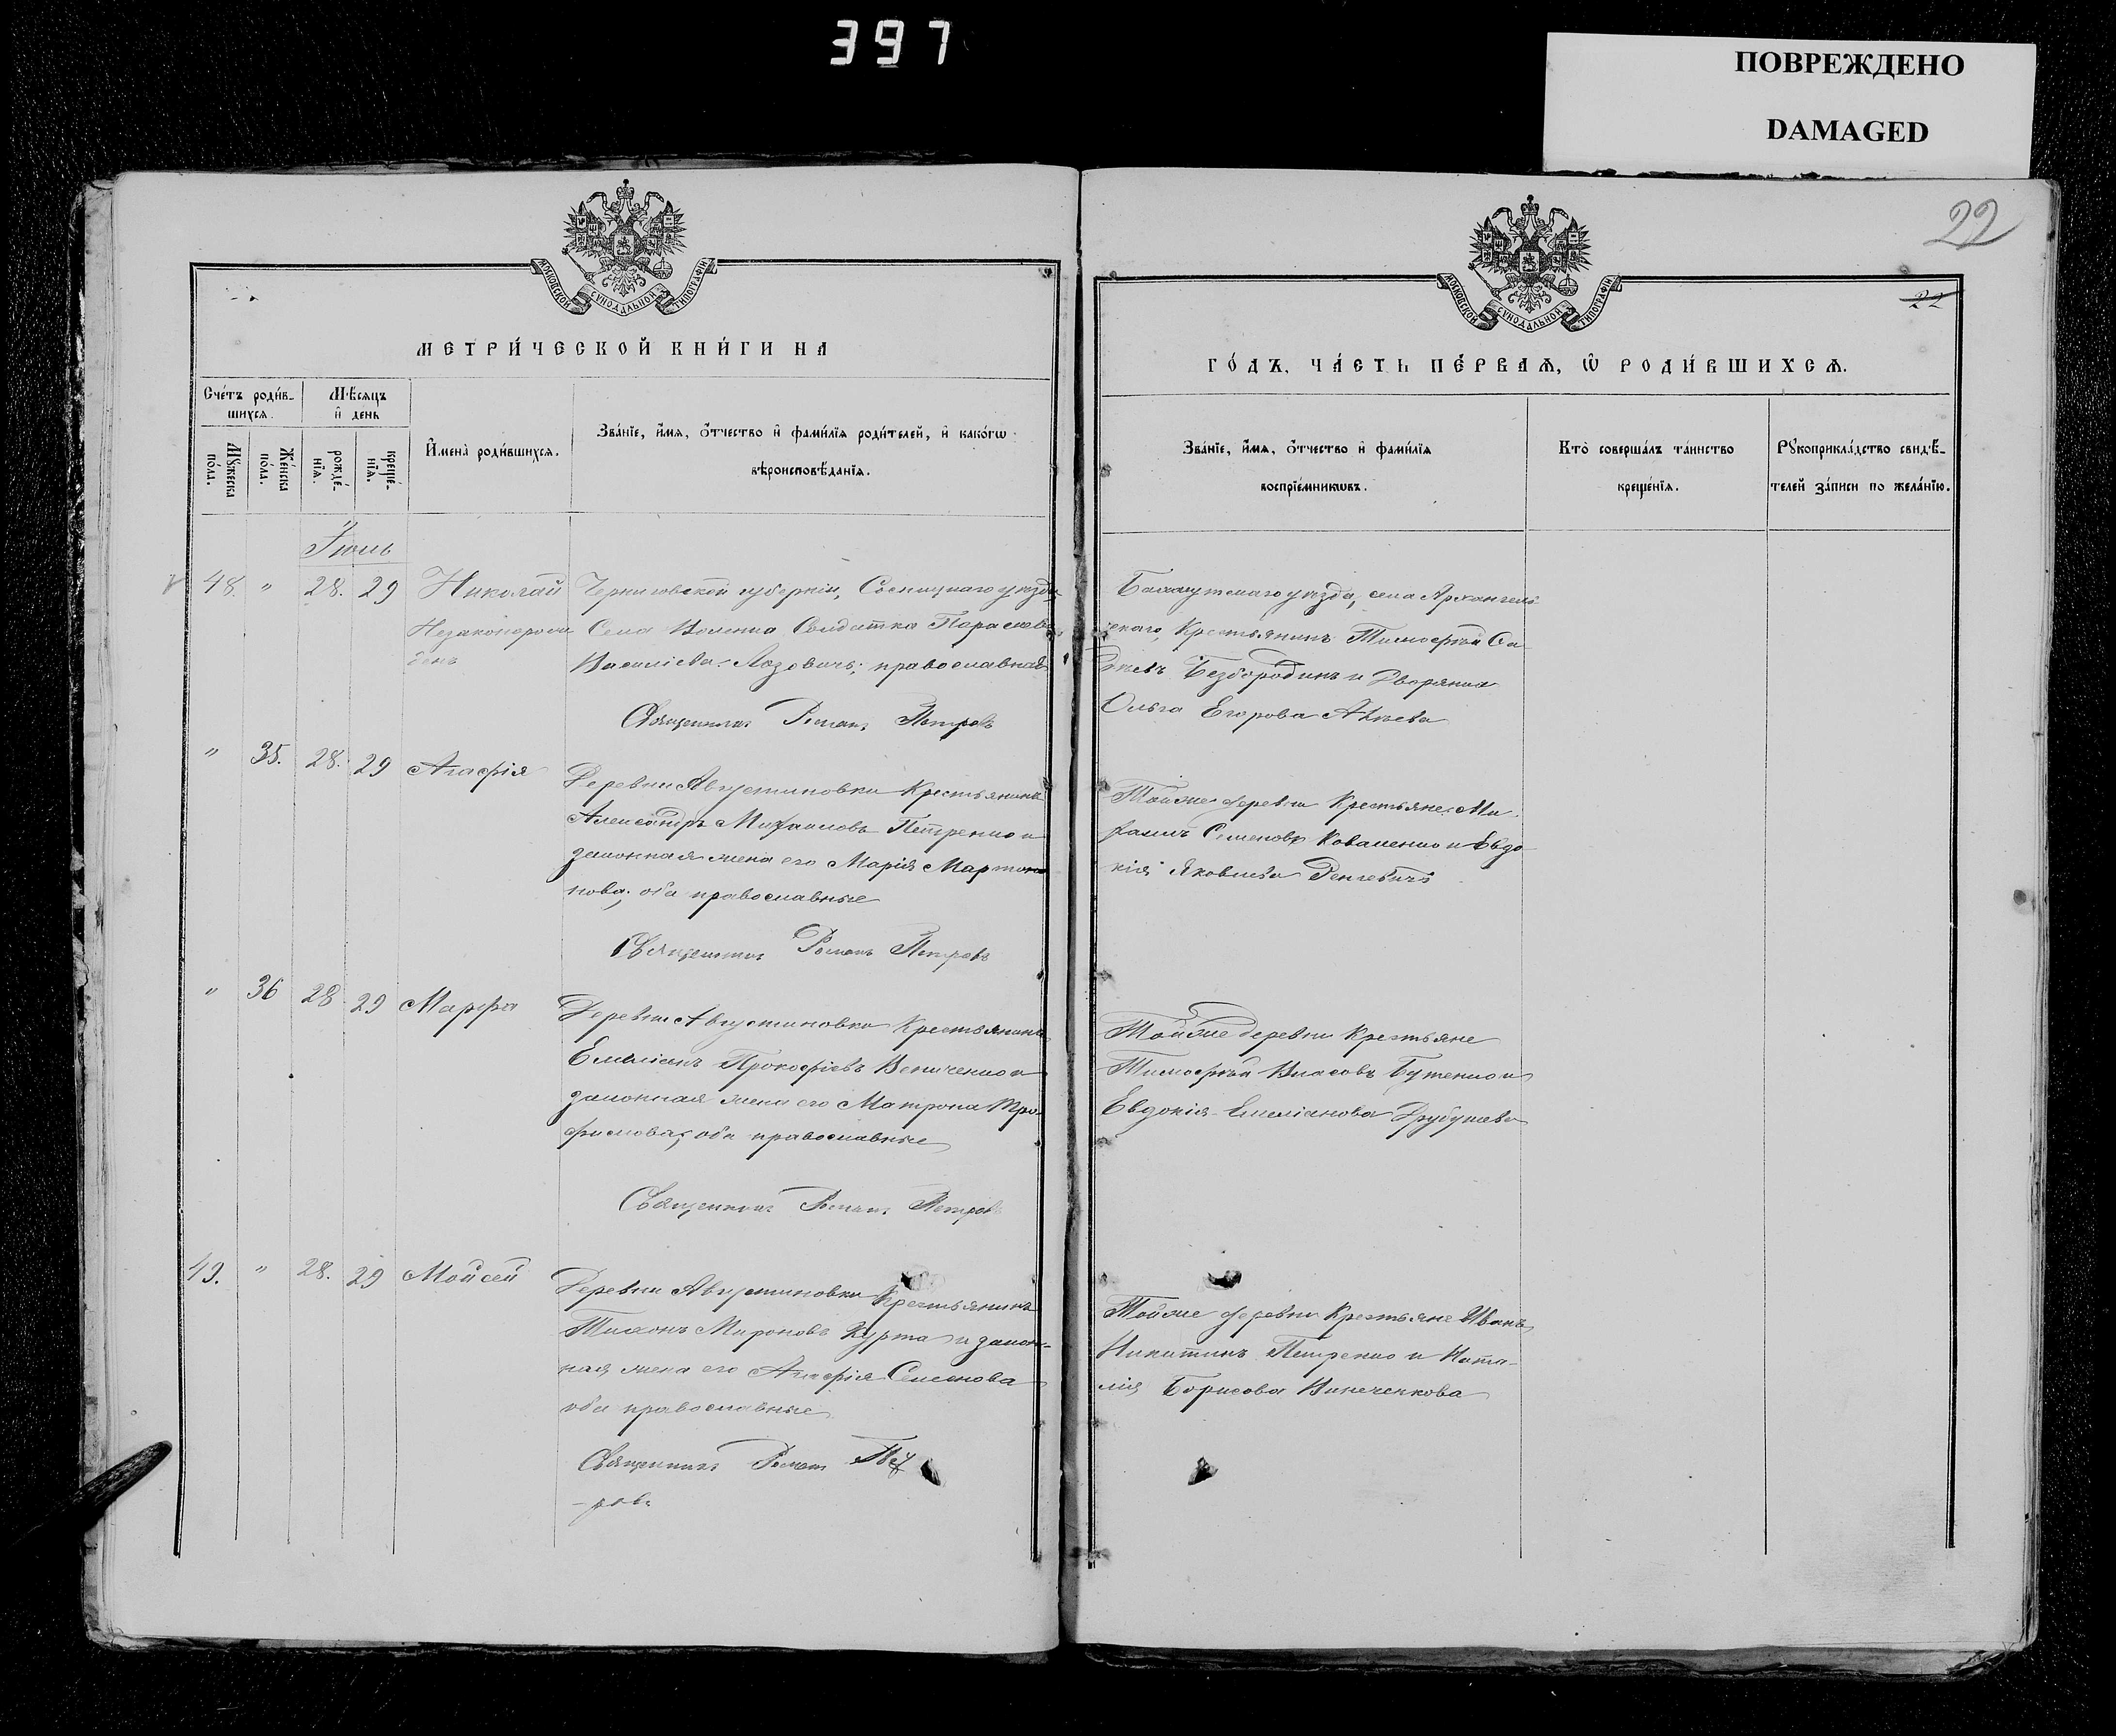 397
ПОВРЕЖДЕНО
DAMAGED
22
22
МОСКОВСКОЙ СУНОДАЛЬНОЙ ТИПОГРАФІИ
МЕТРИ́ЧЕСКОЙ КНИ́ГИ НА
Сче́тъ роди́в-
шихся.
Мѣсяцъ
и҆ день
Му́жеска
по́ла.
Же́нска
по́ла.
рожде́-
нїя.
креще́-
нїя.
И҆мена̀ роди́вшихся.
Зва́нїе, и҆́мя, ѻ҆́тчество и҆ фами́лїя роди́телей, и҆ како́гѡ
вѣроисповѣ́данїя.
Іюль
48. " 28. 29 Николай Черниговской губерніи, Сосницкаго уѣзда
Незаконорож- Села Волынка Солдатка Параскева
денъ Василіева Лозовичъ; православная
Священникъ Романъ Петровъ
" 35. 28. 29 Агафія
Деревни Августиновки Крестьянинъ
Александръ Михайловъ Петренко и
законная жена его Марія Марты-
нова; оба православные
Священникъ Романъ Петровъ
" 36 28 29 Марфа
Деревни Августиновки Крестьянинъ
Емиліанъ Прокофіевъ и
законная жена его Матрона Тро-
фимова; оба православные
Священникъ Романъ Петровъ
49. " 28. 29 Мойсей
Деревни Августиновки Крестьянинъ
Тихонъ Мироновъ Курта и закон-
ная жена его Агафія Семенова
оба православные
Священникъ Романъ Пет
-ровъ
МОСКОВСКОЙ СУНОДАЛЬНОЙ ТИПОГРАФІИ
ГО́ДЪ, ЧА́СТЬ ПЕ́РВАЯ, Ѡ҆ РОДИ́ВШИХСЯ.
Зва́нїе, и҆́мя, ѻ҆́тчество и҆ фами́лїя
воспрїе́мникѡвъ.
Кто̀ соверша́лъ та́инство
креще́нїя.
Рꙋкоприкла́дство свидѣ́-
телей за́писи по жела́нїю.
Бахмутскаго уѣзда, села Архангель-
скаго, Крестьянинъ Тимофей
Безбородинъ и Дворянка
Ольга Егорова
Тойже деревни Крестьяне Ми-
хаилъ Семеновъ Коваленко и Евдо-
кія Яковлева
Тойже деревни Крестьяне
Тимофей Власовъ Бутенко и
Евдокія Емеліанова
Тойже деревни Крестьяне Иванъ
Никитинъ Петренко и Ната-
лія Борисова Винеченкова